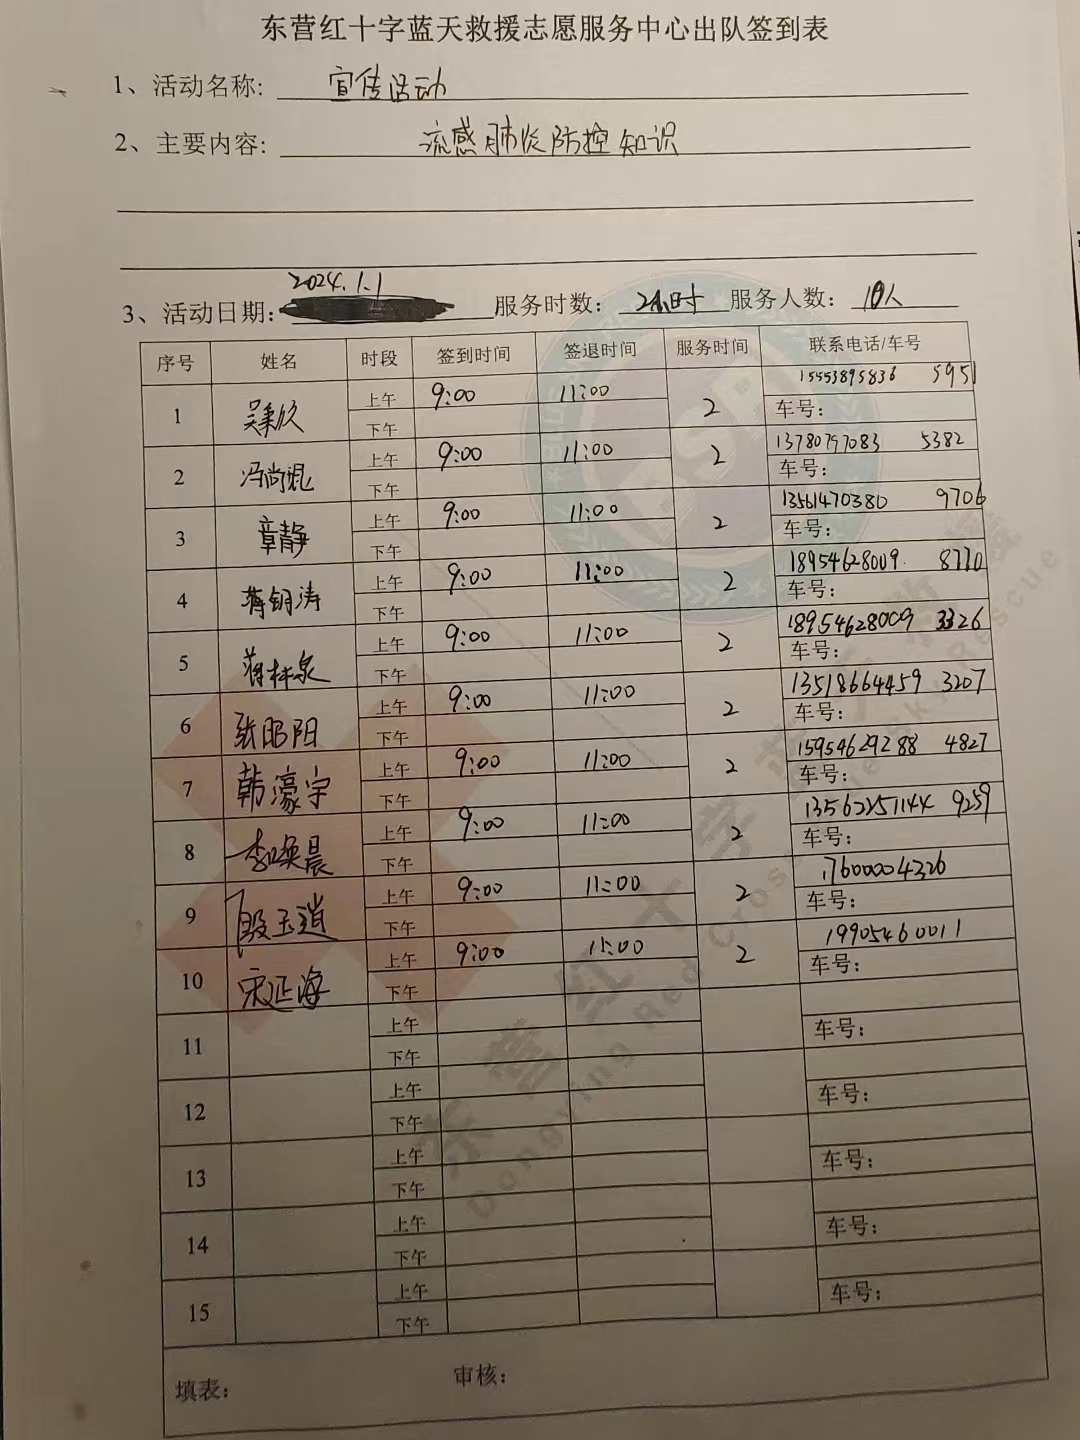 东营红十字蓝天救援志愿服务中心出队签到表
1、活动名称: 宣传活动
2、主要内容: 流感肺炎防控知识
2024.1.1
3、活动日期: 服务时数: 2小时 服务人数: 10人
序号 姓名 时段 签到时间 签退时间 服务时间 联系电话/车号
1 上午 9:00 11:00 2 15553895836 5951
下午 车号:
2 冯尚混 上午 9:00 11:00 2 13780797083 5382
下午 车号:
3 章静 上午 9:00 11:00 2 13561470380 9706
下午 车号:
4 蒋钥涛 上午 9:00 11:00 2 18954628009. 8770
下午 车号:
5 蒋林泉 上午 9:00 11:00 2 18954628009 3326
下午 车号:
6 张昭阳 上午 9:00 11:00 2 13518664459 3207
下午 车号:
7 韩濠宇 上午 9:00 11:00 2 15954629288 4827
下午 车号:
8 李唤晨 上午 9:00 11:00 2 13562251144 9259
下午 车号:
9 殷玉逍 上午 9:00 11:00 2 17600004326
下午 车号:
10 宋延海 上午 9:00 11:00 2 19905460011
下午 车号:
11 上午
下午 车号:
12 上午
下午 车号:
13 上午
下午 车号:
14 上午
下午 车号:
15 上午
下午 车号:
填表: 审核:
东营红十字蓝天救援
Dongying Red Cross Blue Sky Rescue